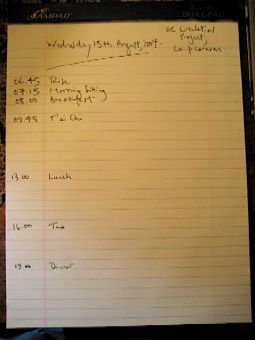 CAMPAD
DUAL PAD
Wednesday 15th August, 2007.
Project,
06.45 Rise
07.15 Morning Sitting
08.00 Breakfast
09.45 T'ai Chi
13.00 Lunch
16.00 Tea
19.00 Dinner